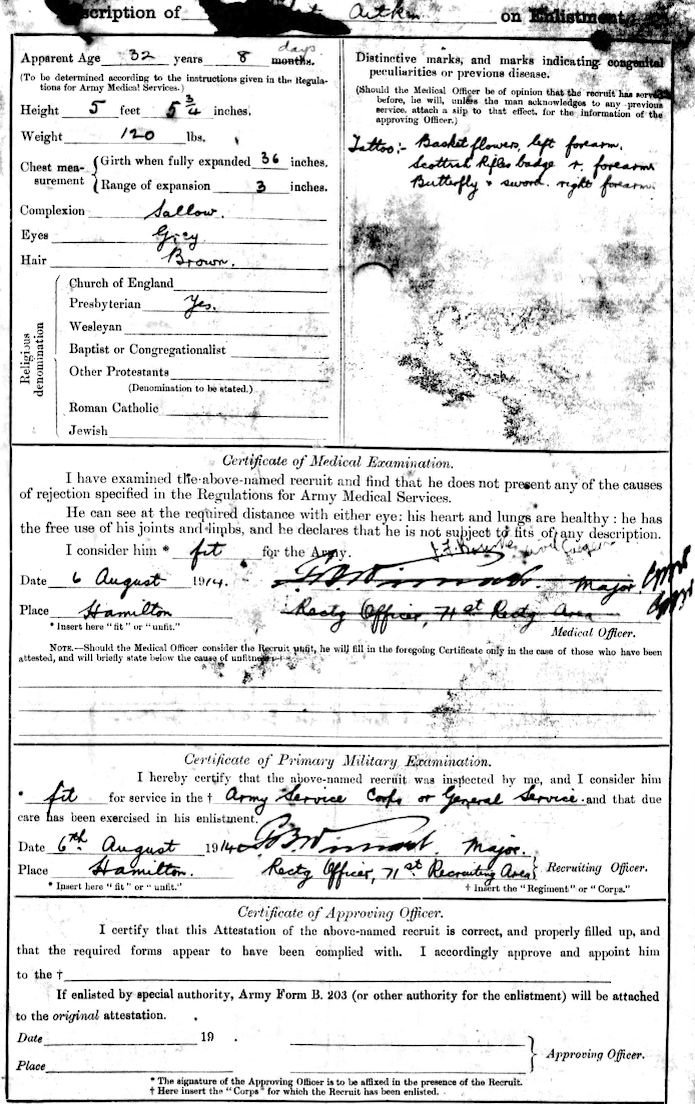 scription of Aitken on Enlistment.
Apparent Age 32 years 8 months. days
(To be determined according to the instructions given in the Regula-
tions for Army Medical Services.)
Height 5 feet 5 3/4 inches.
Weight 120 lbs.
Chest mea-
surement
Girth when fully expanded 36 inches.
Range of expansion 3 inches.
Complexion Sallow.
Eyes Grey
Hair Brown.
Religious
denomination
Church of England
Presbyterian Yes.
Wesleyan
Baptist or Congregationalist
Other Protestants
(Denomination to be stated.)
Roman Catholic
Jewish
Distinctive marks, and marks indicating congenital
peculiarities or previous disease.
(Should the Medical Officer be of opinion that the recruit has served
before, he will, unless the man acknowledges to any previous
service, attach a slip to that effect, for the information of the
approving Officer.)
Tattoo :- Basket flowers, left forearm.
Scottish Rifles badge r. forearm
Butterfly + sword. right forearm.
Certificate of Medical Examination.
I have examined the above-named recruit and find that he does not present any of the causes
of rejection specified in the Regulations for Army Medical Services.
He can see at the required distance with either eye: his heart and lungs are healthy: he has
the free use of his joints and limbs, and he declares that he is not subject to fits of any description.
I consider him * fit for the Army.
Date 6 August 1914.
Major
Place Hamilton
Rectg Officer, 71st Rectg Area
* Insert here "fit" or "unfit."
Medical Officer.
NOTE.—Should the Medical Officer consider the Recruit unfit, he will fill in the foregoing Certificate only in the case of those who have been
attested, and will briefly state below the cause of unfitness:—
Certificate of Primary Military Examination.
I hereby certify that the above-named recruit was inspected by me, and I consider him
* fit for service in the † Army Service Corps or General Service. and that due
care has been exercised in his enlistment.
Date 6th August 1914 Major.
Place Hamilton. Rectg Officer, 71st Recruiting Area Recruiting Officer.
* Insert here "fit" or "unfit." † Insert the "Regiment" or "Corps."
Certificate of Approving Officer.
I certify that this Attestation of the above-named recruit is correct, and properly filled up, and
that the required forms appear to have been complied with. I accordingly approve and appoint him
to the †
If enlisted by special authority, Army Form B. 203 (or other authority for the enlistment) will be attached
to the original attestation.
Date 19 .
Approving Officer.
Place
* The signature of the Approving Officer is to be affixed in the presence of the Recruit.
† Here insert the "Corps" for which the Recruit has been enlisted.